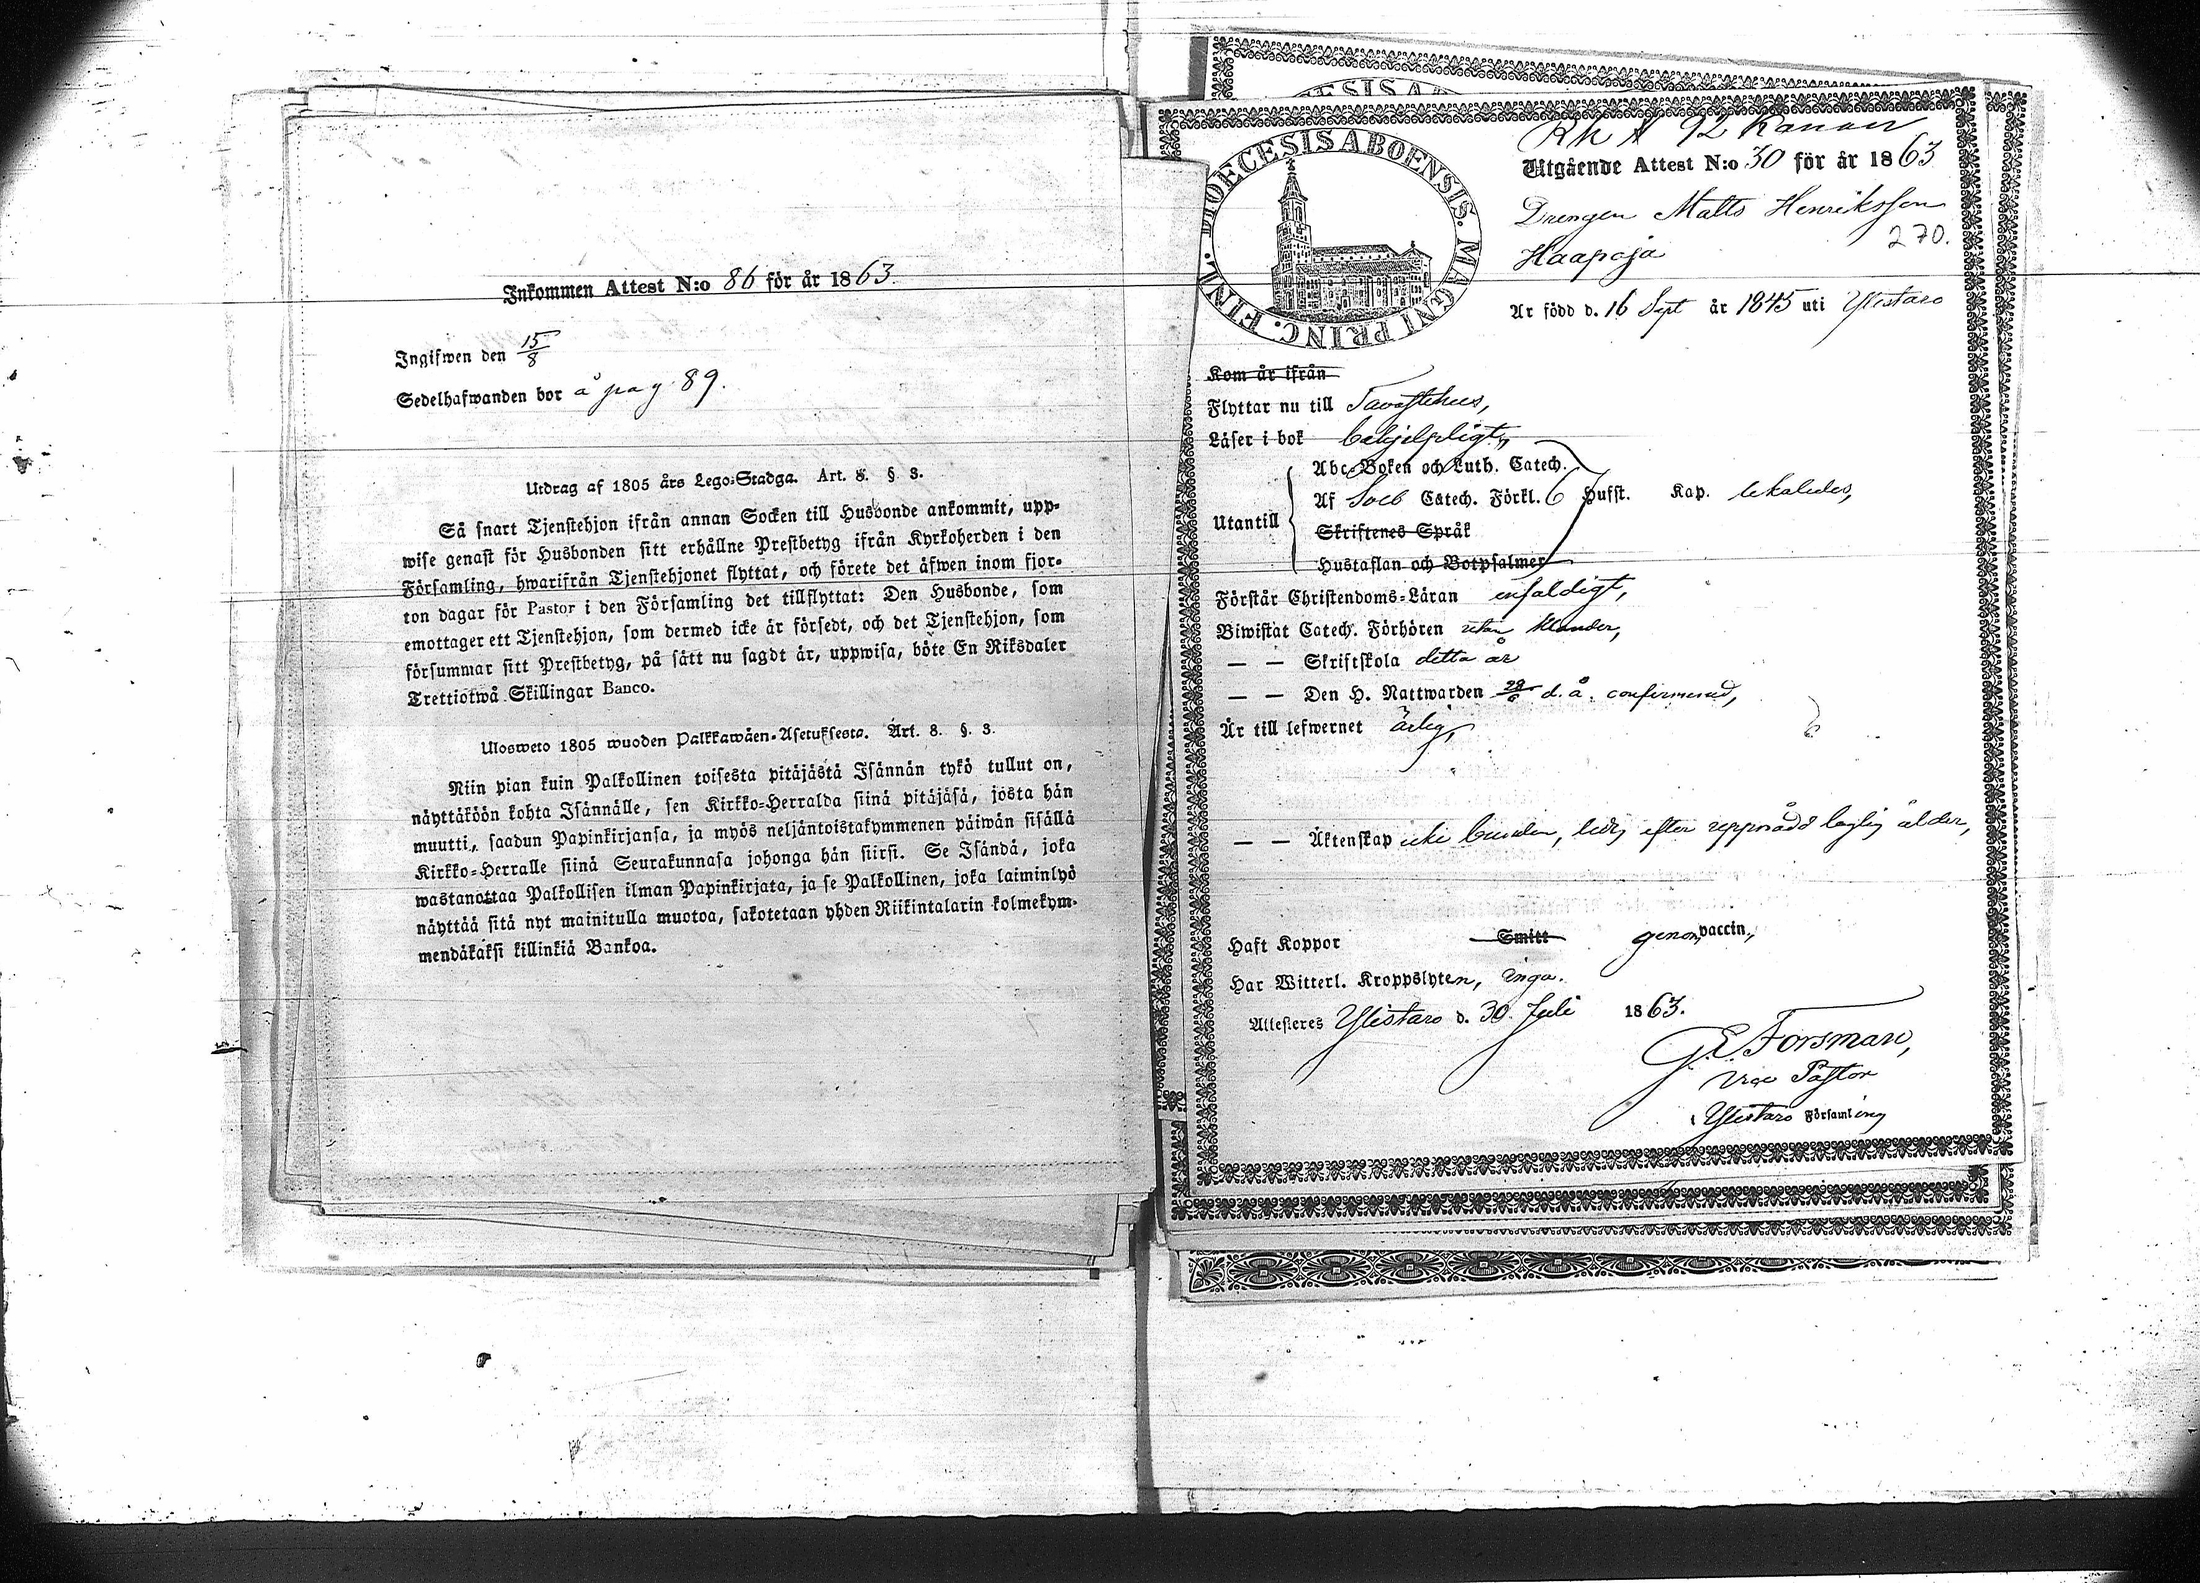 Inkommen Attest N:o 86 för år 1863.
Ingifwen den 15/8
Sedelhafwanden bor å pag 89.
Utdrag af 1805 års Lego-Stadga. Art. 8. §. 3.
Så snart Tjenstehjon ifrån annan Socken till Husbonde ankommit, upp-
wise genast för Husbonden sitt erhållne Prestbetyg ifrån Kyrkoherden i den
Församling, hwarifrån Tjenstehjonet flyttat, och förete det äfwen inom fjor-
ton dagar för Pastor i den Församling det tillflyttat: Den Husbonde, som
emottager ett Tjenstehjon, som dermed icke är försedt, och det Tjenstehjon, som
försummar sitt Prestbetyg, på sätt nu sagdt är, uppwisa, böte En Riksdaler
Trettiotwå Skillingar Banco.
Ulosweto 1805 wuoden Palkkawäen-Asetuksesta. Art. 8. §. 3.
Niin pian kuin Palkollinen toisesta pitäjästä Isännän tykö tullut on,
näyttäköön kohta Isännälle, sen Kirkko-Herralda siinä pitäjäsä, josta hän
muutti, saadun Papinkirjansa, ja myös neljäntoistakymmenen päiwän sisällä
Kirkko-Herralle siinä Seurakunnasa johonga hän siirsi. Se Isändä, joka
wastanottaa Palkollisen ilman Papinkirjata, ja se Palkollinen, joka laiminlyö
näyttää sitä nyt mainitulla muotoa, sakotetaan yhden Riikintalarin kolmekym-
mendäkaksi killinkiä Bankoa.
DIOECESIS ABOENSIS. MAGNI PRINC. FINL.
92
Utgående Attest N:o 30 för år 1863
Drengen Matts Henriksson
270.
Haapoja
Är född d. 16 Sept år 1845 uti Ylistaro
Kom år ifrån
Flyttar nu till Tavastehus,
Läser i bok behjelpligt,
Abc-Boken och Luth. Catech.
Utantill Af Sveb Catech. Förkl. 6 Hufst. Kap. lekaledes,
Skriftenes Språk
Hustaflan och Botpsalmer
Förstår Christendoms-Läran enfaldigt,
Biwistat Catech. Förhören utan klander,
— — Skriftskola detta år
— — Den H. Nattwarden 28/6 d. å. confirmerad,
Är till lefwernet ärlig,
— — Äktenskap icke bunden, ledig efter uppnådd laglig ålder,
Haft Koppor Smitt genom vaccin.,
Har Witterl. Kroppslyten, inga.
Attesteres Ylistaro d. 30 Juli 1863.
G. E. Forsman,
Vice Pastor
i Ylistaro Församling